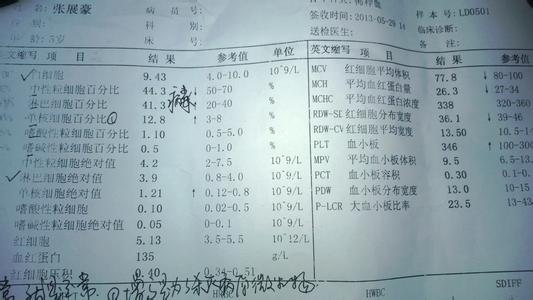 姓 名: 张展豪 病 员 号: 标本种类: 样 本 号: LD0501
科 别: 签收时间: 2013-05-29 14 临床诊断:
年 龄: 5岁 床 号: 送检医生: 备 注:
英文缩写 项 目 结 果 参考值 单位 英文缩写 项 目 结 果 参考值
白细胞 9.43 4.0-10.0 10^9/L MCV 红细胞平均体积 77.8 ↓ 80-100
中性粒细胞百分比 44.3 ↓ 50-70 % MCH 平均血红蛋白量 26.3 ↓ 27-34
淋巴细胞百分比 41.3 ↑ 20-40 % MCHC 平均血红蛋白浓度 338 320-360
单核细胞百分比 ① 12.8 ↑ 3-8 % RDW-SD 红细胞分布宽度 36.1 ↓ 39-46
嗜酸性粒细胞百分比 1.10 0.5-5.0 % RDW-CV 红细胞平均宽度 13.50 10.5-1
嗜碱性粒细胞百分比 0.5 0-1.0 % PLT 血小板 346 ↑ 100-300
中性粒细胞绝对值 4.2 2-7.5 10^9/L MPV 平均血小板体积 9.5 6.5-13.
淋巴细胞绝对值 3.9 0.8-4.0 10^9/L PCT 血小板容积 0.30 0.1-0.
单核细胞绝对值 1.21 ↑ 0.12-0.8 10^9/L PDW 血小板分布宽度 13.0 10-15
嗜酸性粒细胞 0.10 0.02-0.5 10^9/L P-LCR 大血小板比率 23.5 13-43
嗜碱性粒细胞绝对值 0.05 0-0.1 10^9/L
红细胞 5.13 3.5-5.5 10^12/L
血红蛋白 135 g/L
红细胞压积 0.40 0.34-0.51
SDIFF